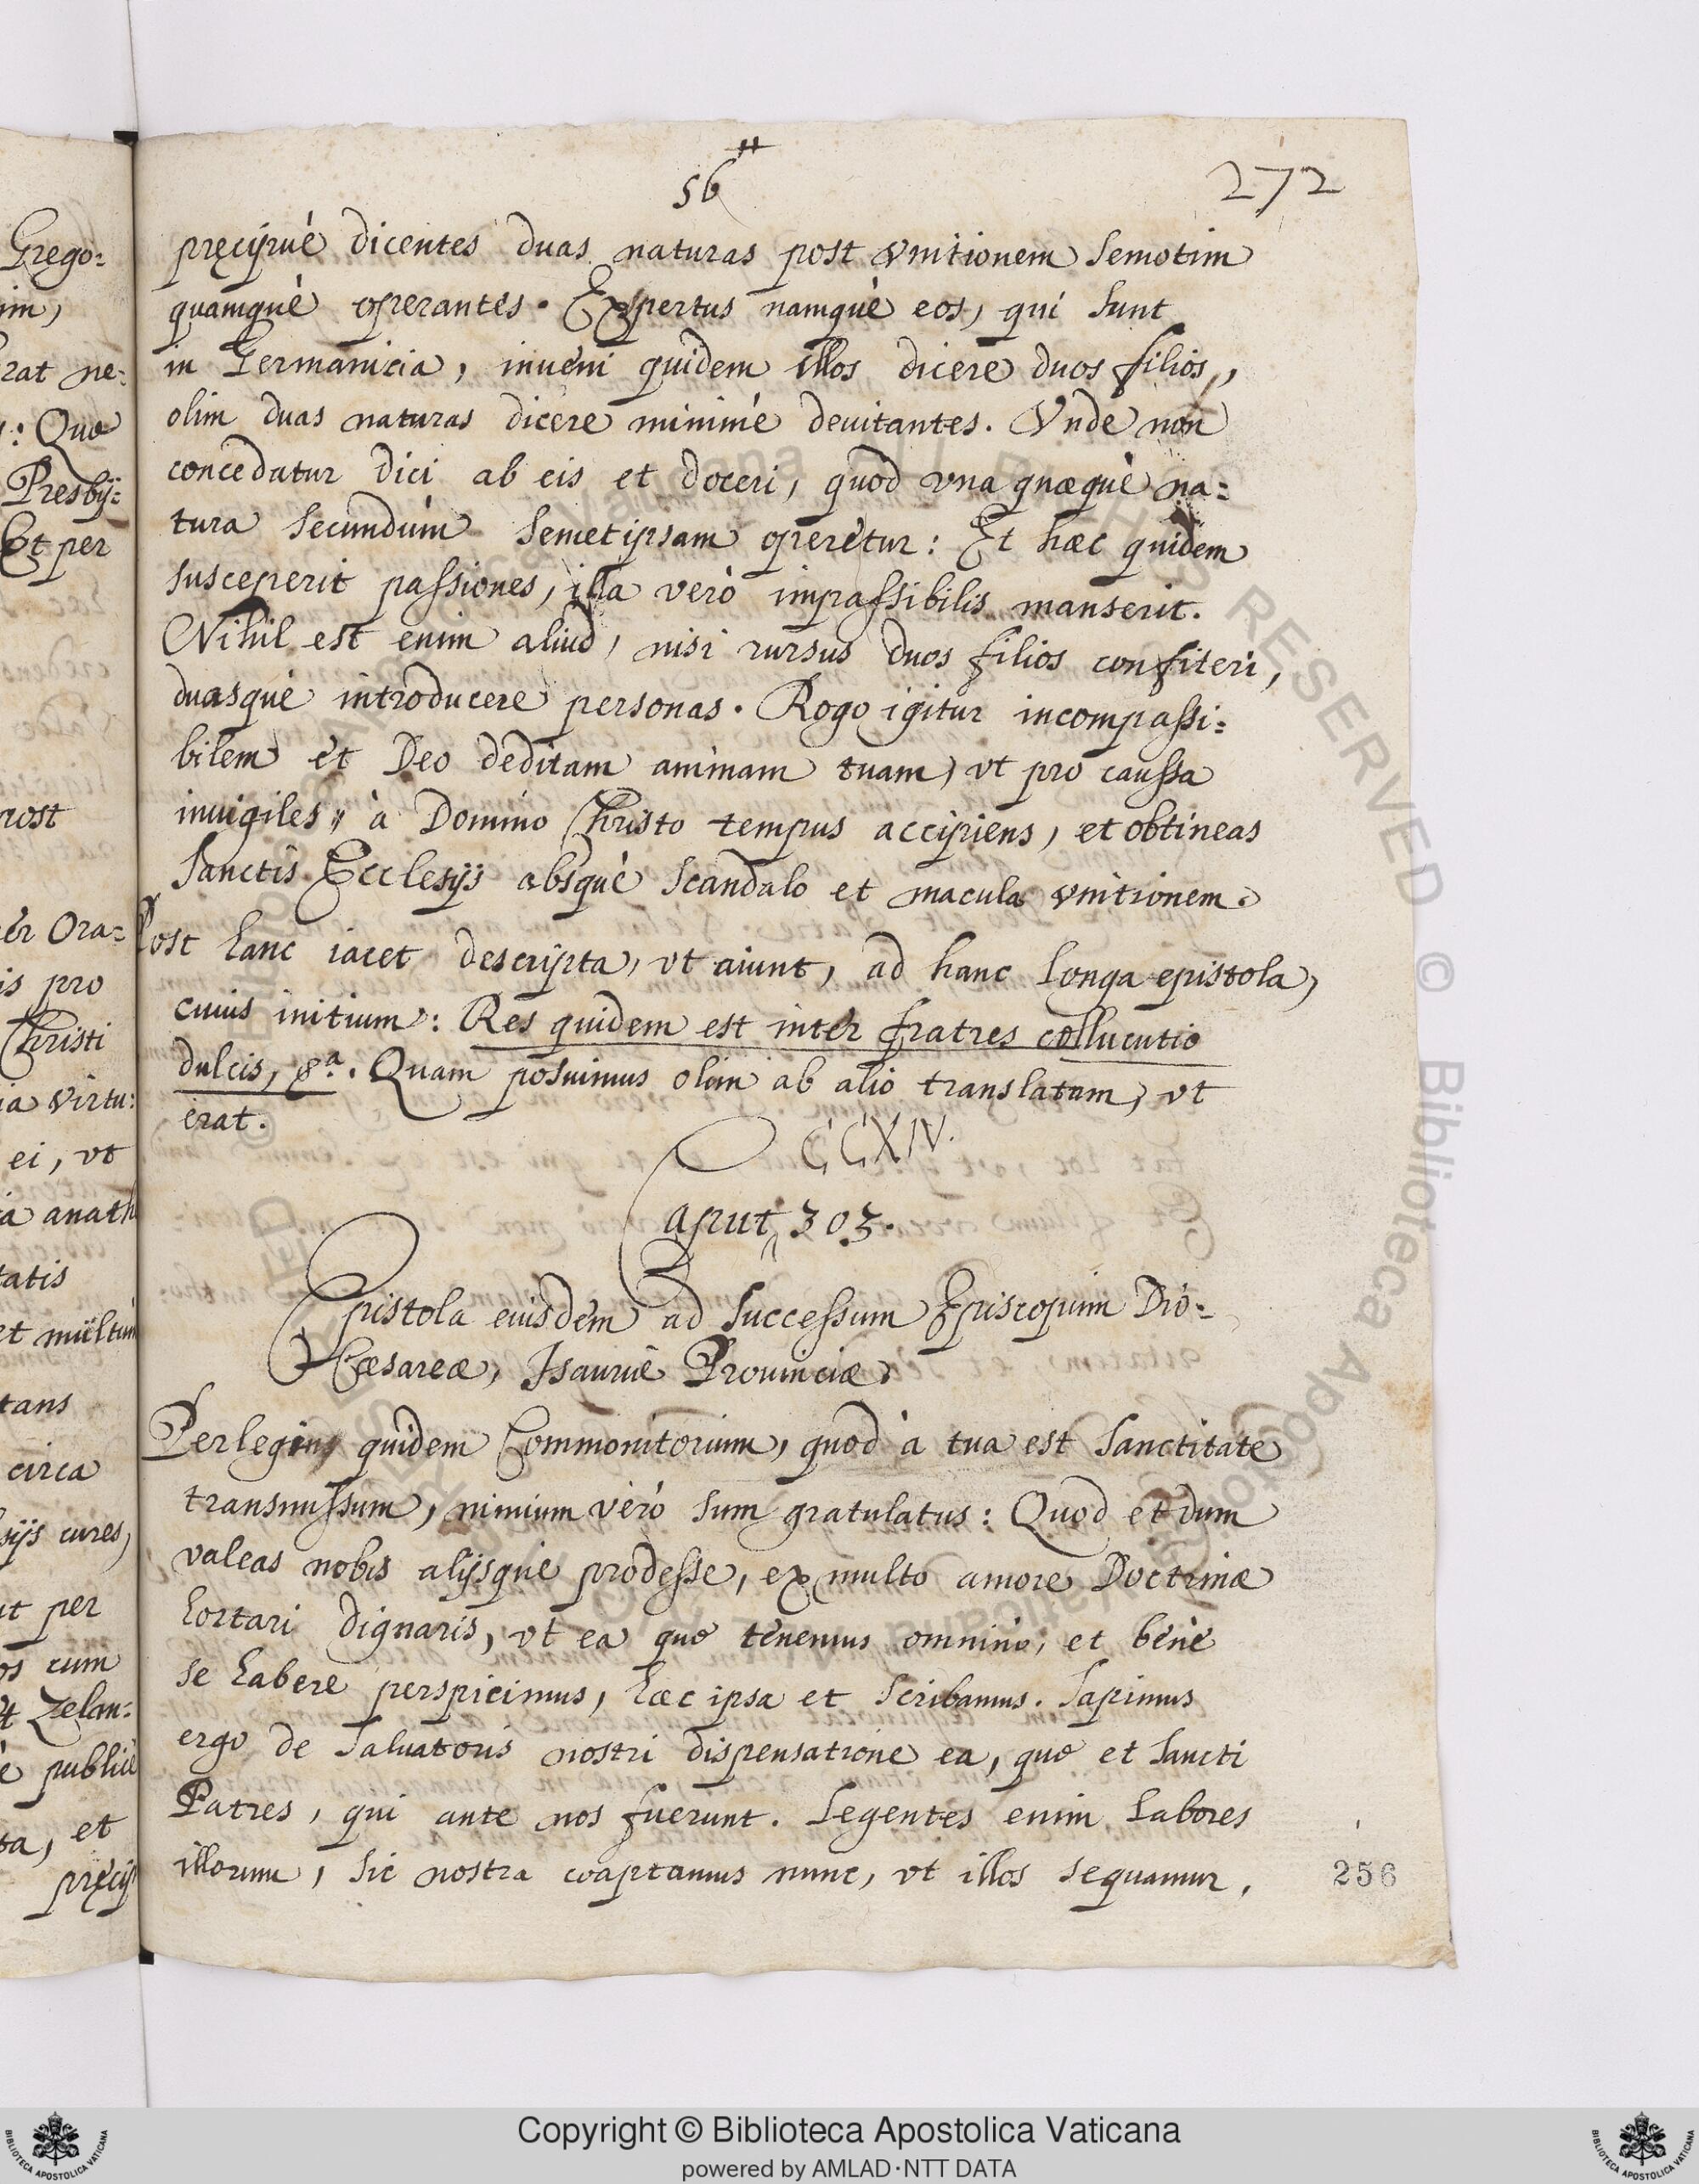 56
272
Grego:
im,
rat ne:
: Quę
Presby:
Et per
post
er Ora:
is pro
Christi
ia virtu:
ei, vt
ia anath
tatis
et multum
tans
circa
sijs cures,
ut per
os cum
et zelan:
è publicè
ta, et
pręcip
pręcipuè dicentes duas naturas post vnitionem semotim
quamquè operantes. Expertus namquè eos, qui sunt
in Germanicia, inueni quidem illos dicere duos filios,
olim duas naturas dicere minimè deuitantes. Vnde non
concedatur dici ab eis et doceri, quod vna quæquè na:
tura secundùm semetipsam operetur: Et hæc quidem
susceperit passiones, illa verò impassibilis manserit.
Nihil est enim aliud, nisi rursus duos filios confiteri,
duasquè introducere personas. Rogo igitur incompassi:
bilem et Deo deditam animam tuam, vt pro caussa
inuigiles, à Domino Christo tempus accipiens, et obtineas
sanctis Ecclesijs absquè scandalo et macula vnitionem.
Post hanc iacet descripta, vt aiunt, ad hanc longa epistola,
cuius initium: Res quidem est inter fratres collucutio
dulcis, &a. Quam posuimus olim ab alio translatam, vt
erat.
CCXIV.
Caput 303.
Epistola eiusdem ad Successum Episcopum Dio:
Cæsareæ, Isaurię Prouinciæ.
Perlegens quidem Commonitorium, quod à tua est sanctitate
transmissum, nimium verò sum gratulatus: Quod et dum
valeas nobis alijsquè prodesse, ex multo amore Doctrinæ
hortari dignaris, vt ea quę tenemus omninò, et benè
se habere perspicimus, hæc ipsa et scribamus. Sapimus
ergo de Saluatoris nostri dispensatione ea, quę et sancti
Patres, qui ante nos fuerunt. Legentes enim labores
illorum, sic nostra coaptamus nunc, vt illos sequamur,
256
Copyright © Biblioteca Apostolica Vaticana
powered by AMLAD·NTT DATA